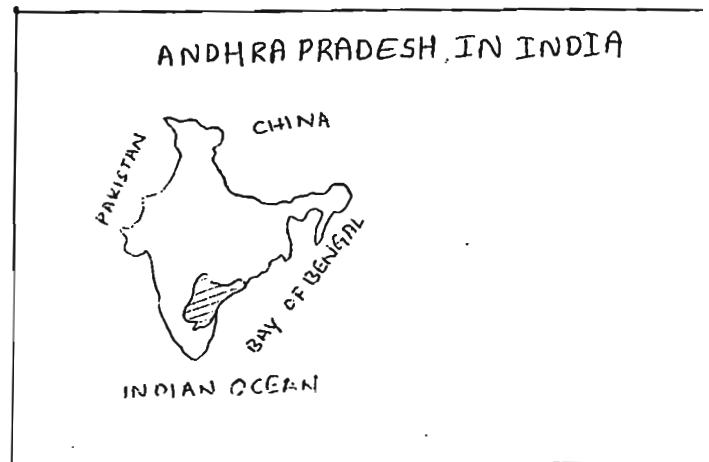 ANDHRA PRADESH, IN INDIA
CHINA
PAKISTAN
BAY OF BENGAL
INDIAN OCEAN